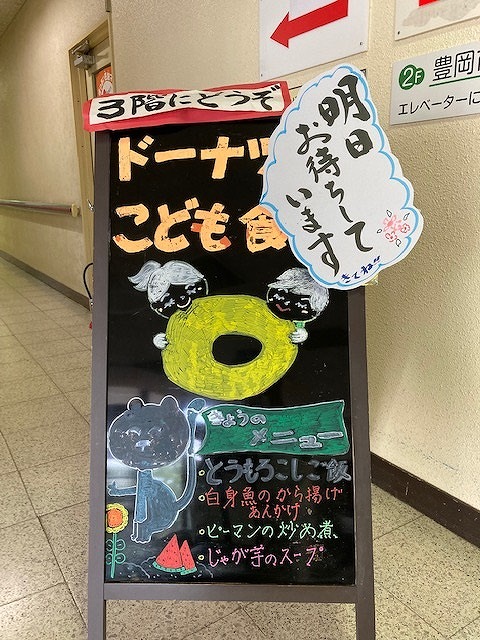 2F 豊岡
エレベーターに
3階にどうぞ
ドーナツ
こども食
明日
お待ちして
います
きてね!!
きょうの
メニュー
・とうもろこしご飯
・白身魚のから揚げ
あんかけ
・ピーマンの炒め煮、
・じゃが芋のスープ